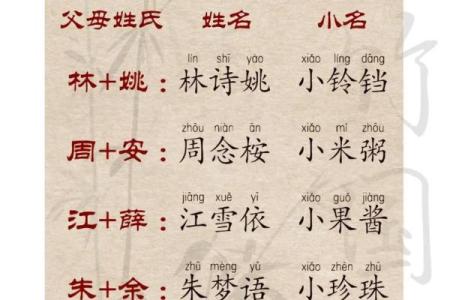 父母姓氏 姓名 小名
lín shī yáo xiǎo líng dāng
林+姚：林诗姚 小铃铛
zhōu niàn ān xiǎo mǐ zhōu
周+安：周念桉 小米粥
jiāng xuě yī xiǎo guǒ jiàng
江+薛：江雪依 小果酱
zhū mèng yǔ xiǎo zhēn zhū
朱+余：朱梦语 小珍珠